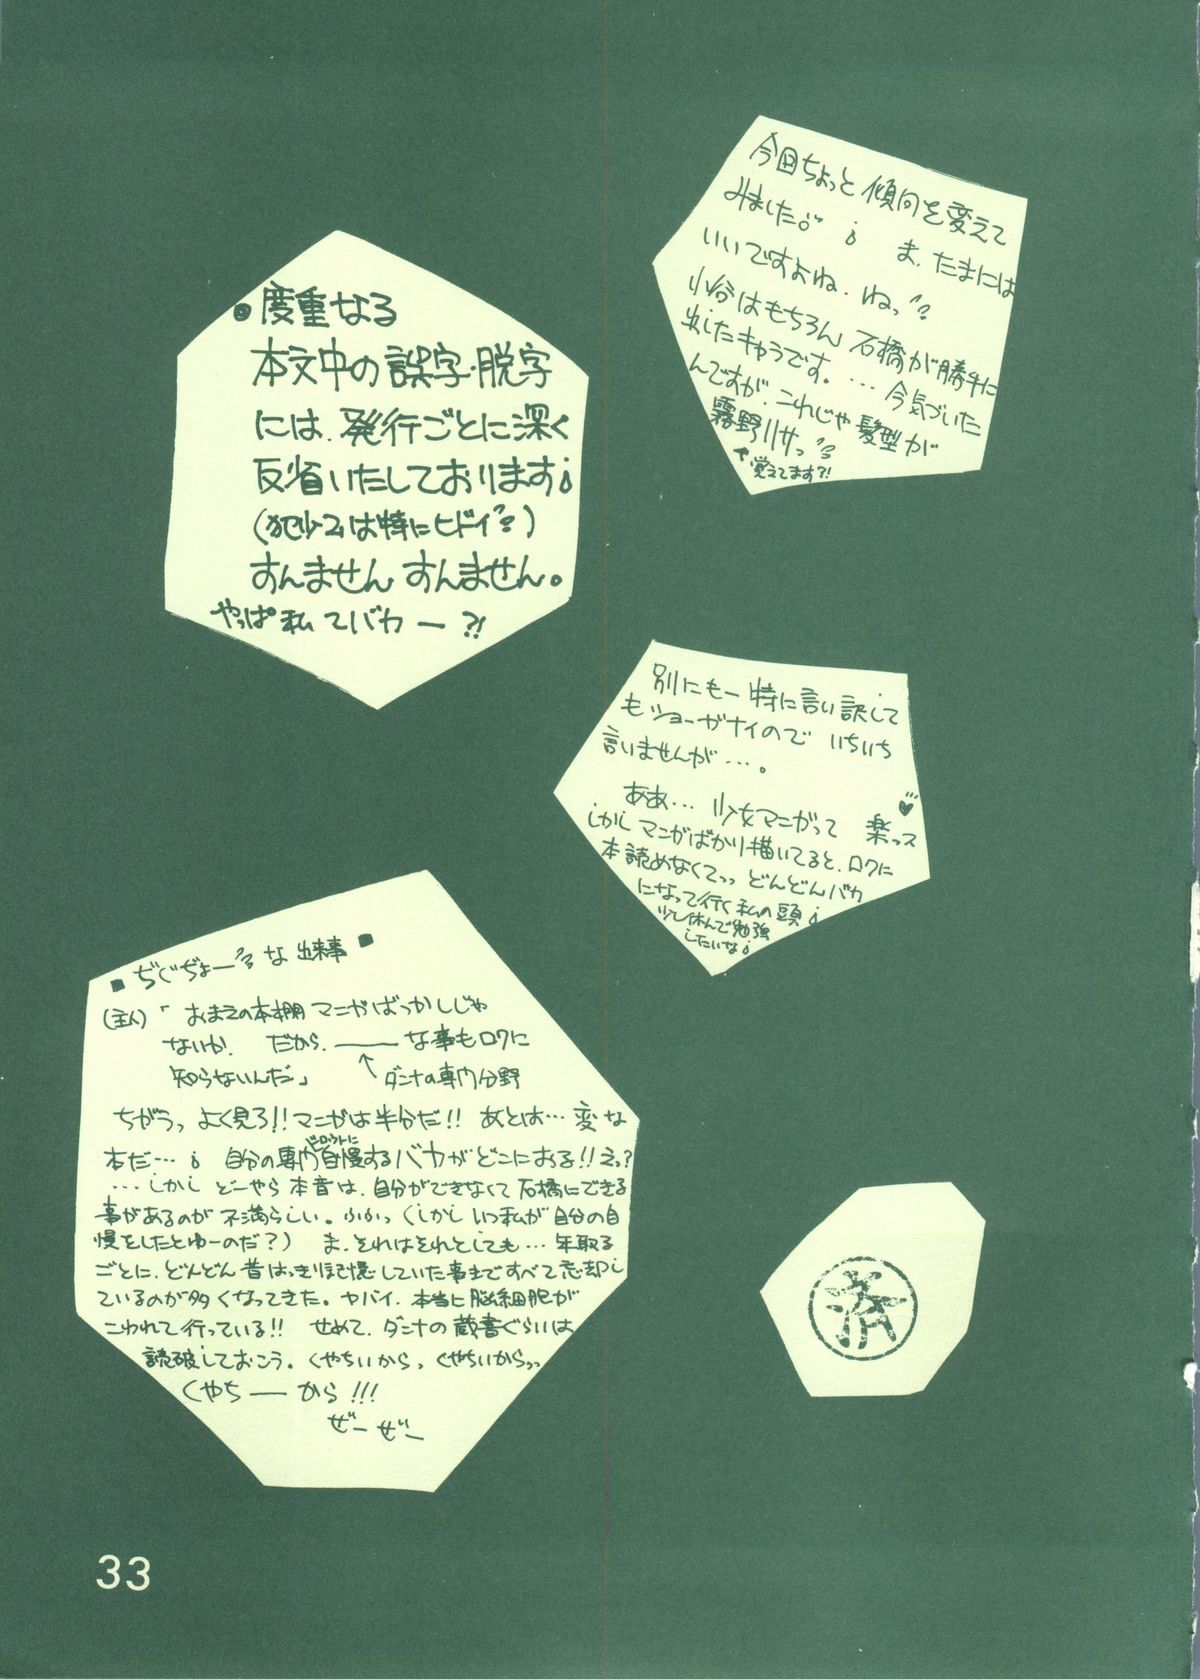 今回ちょっと傾向を変えて
みました。 ま、たまには
いいですよね、ねっ
小谷はもちろん 石橋が勝手に
出したキャラです。… 今気づいた
んですが、これじゃ髪型が
霧野リサっ
覚えてます?!
●度重なる
本文中の誤字・脱字
には、発行ごとに深く
反省いたしております
(犯少2は特にヒドイ)
すんません すんません。
やっぱ私てバカー?!
別にもー特に言い訳して
もショーガナイので いちいち
言いませんが…。
ああ… 少女マンガって 楽っス
しかしマンガばかり描いてると、ロクに
本読めなくてっっ どんどんバカ
になって行く私の頭
少し休んで勉強
したいな
■ぢぐぢょーな出来事■
(主人)「おまえの本棚マンガばっかしじゃ
ないか。 だから、――な事もロクに
知らないんだ」 ↑ダンナの専門分野
ちがうっ よく見ろ!!マンガは半分だ!! あとは…変な
本だ… 自分の専門自慢するバカがどこにおる!!えっ?
…しかし どーやら本音は、自分ができなくて石橋にできる
事があるのが不満らしい。ふふっ(しかしいつ私が自分の自
慢をしたとゆーのだ?) ま、それはそれとしても…年取る
ごとに、どんどん昔はっきり記憶していた事まですべて忘却し
ているのが多くなってきた。ヤバイ、本当に脳細胞が
こわれて行っている!! せめて、ダンナの蔵書ぐらいは
読破しておこう。くやちいから、くやちいからっっ
くやちーから!!!
ぜーぜー
済
33